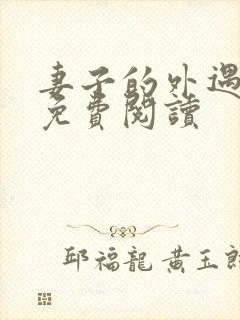 妻子的外遇
免費閱讀
邱福龍 黃玉郎